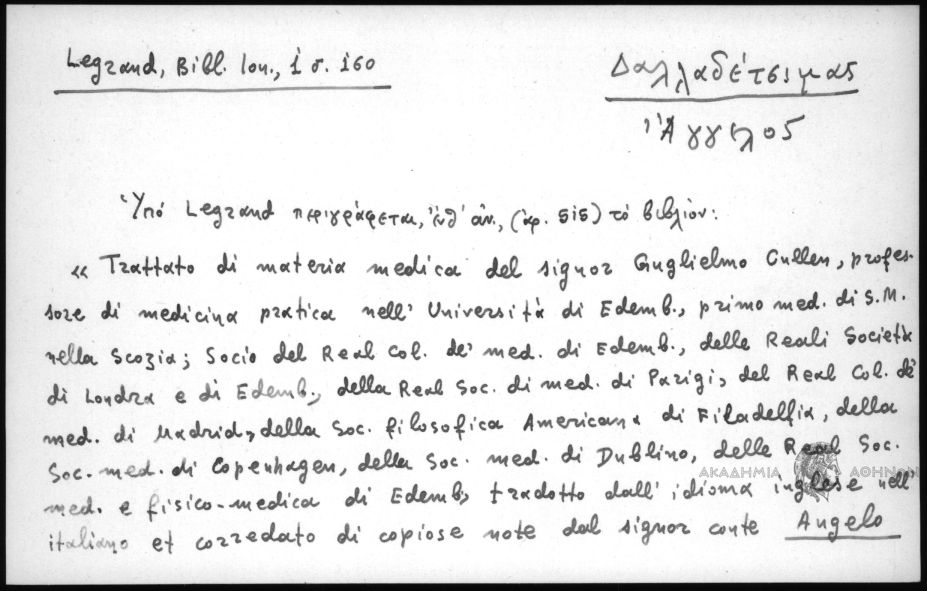 Legrand, Bibl. Ion., 1 σ. 160
Δαλλαδέτσιμας
Ἄγγελος
Ὑπό Legrand περιγράφεται, ἐνθ' ἀν., (ἀρ. 515) τό βιβλίον:
« Trattato di materia medica del signor Guglielmo Cullen, profes-
sore di medicina pratica nell' Università di Edemb., primo med. di S.M.
nella Scozia; Socio del Real Col. de' med. di Edemb., delle Reali Società
di Londra e di Edemb., della Real Soc. di med. di Parigi, del Real Col. de'
med. di Madrid, della Soc. filosofica Americana di Filadelfia, della
Soc. med. di Copenhagen, della Soc. med. di Dublino, delle Real Soc.
med. e fisico-medica di Edemb, tradotto dall' idioma inglese nell'
italiano et corredato di copiose note dal signor conte Angelo
ΑΚΑΔΗΜΙΑ ΑΘΗΝΩΝ